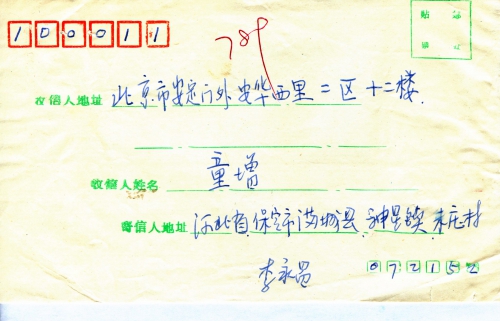 100011
789
贴 邮
票 处
收信人地址 北京市安定门外安华西里二区十二楼.
收信人姓名 童增
寄信人地址 河北省保定市满城县神星镇来庄村
李永昌
072152